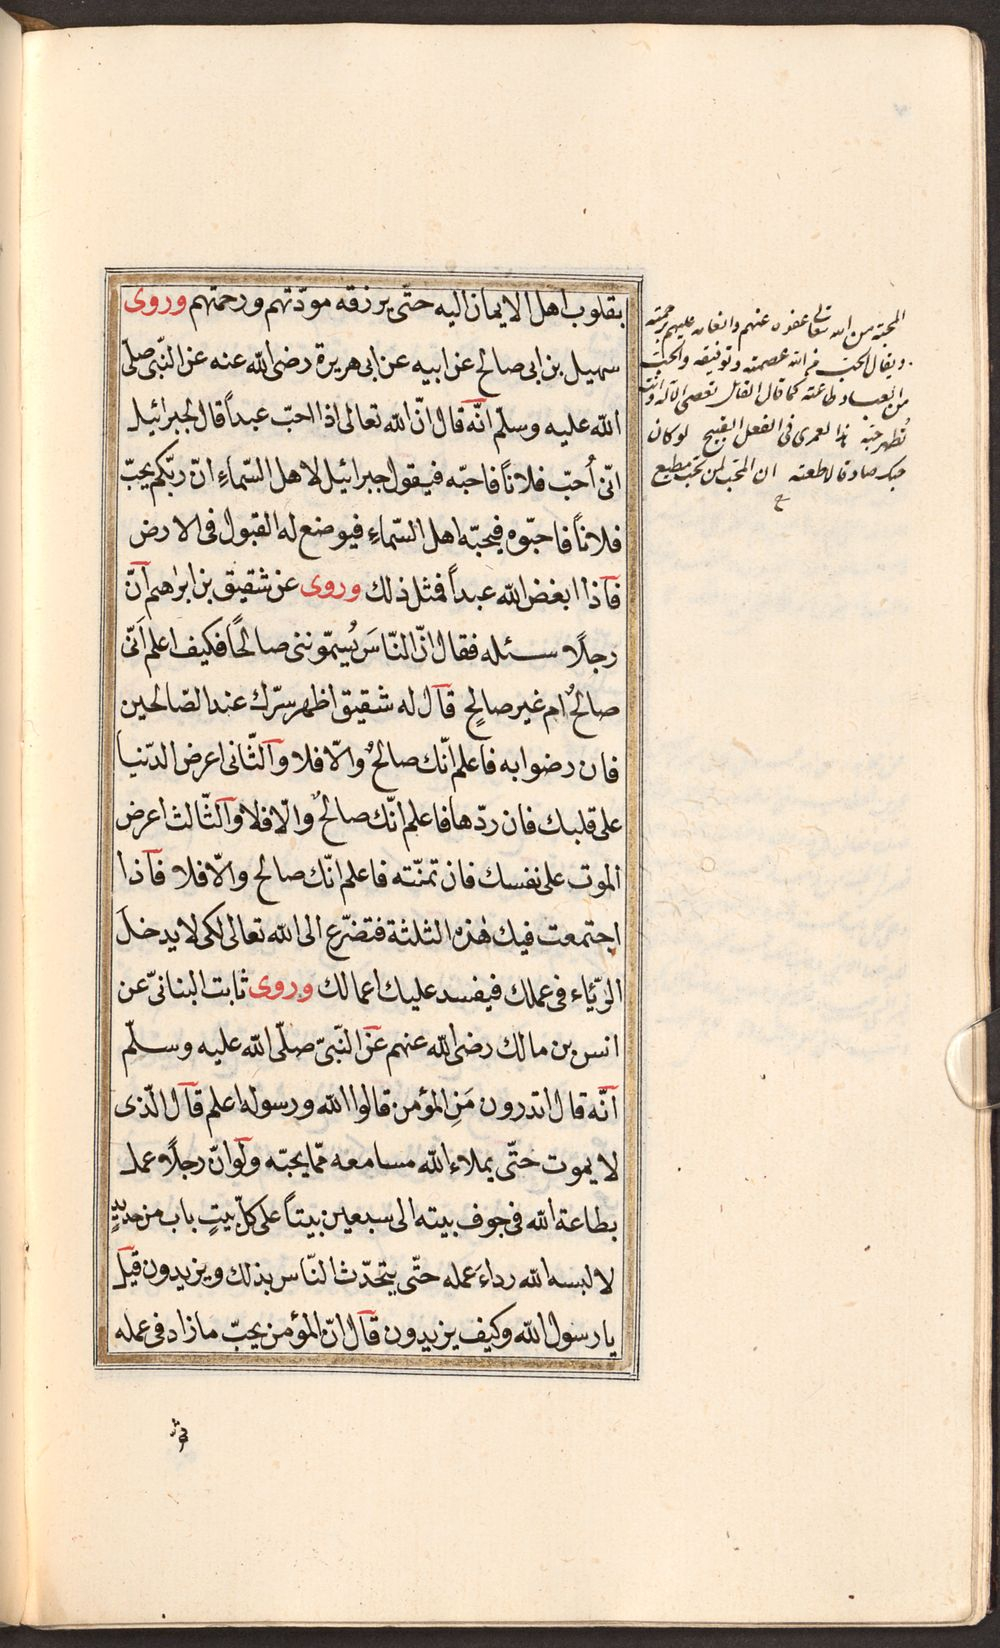 بقلوب اهل الايمان اليه حتّى يرزقه مودّتهم ورحمتهم وروى
سهيل بن ابى صالح عن ابيه عن ابى هريرة رضى الله عنه عن النّبى صلّى
الله عليه وسلّم انّه قال انّ الله تعالى اذا احبّ عبداً قال لجبرائيل
انّى أُحبّ فلاناً فاحبّه فيقول جبرائيل لاهل السّماءِ انّ ربّكم يحبّ
فلاناً فاحبّوه فيحبّه اهل السّماءِ فيوضع له القبول فى الارض
فآذا ابغض الله عبداً فمثل ذلك وروى عن شقيق بن ابرٰهيم آنّ
رجلًا سئله فقال انّ النّاسَ يُسمّوننى صالحًا فكيف اعلم اَنّى
صالحٌ ام غير صالحٍ قآل له شقيق اظهر سرّك عند الصّالحين
فان رضوا به فاعلم انّك صالحٌ والّا فلا وآلثّانى اعرض الدّنيا
على قلبك فان ردّها فاعلم انّك صالحٌ والّا فلا وآلثّالث اعرض
الموت على نفسك فان تمنّته فاعلم انّك صالح والّا فلا فآذا
اجتمعت فيك هٰذه الثلثة فتضرّع الى الله تعالى لكى لا يدخل
الرّئاء فى عملك فيفسد عليك اعمالك وروى ثابت البنانىّ عن
انس بن مالك رضى الله عنهم عن النّبىّ صلّى الله عليه وسلّم
آنّه قال اتدرون مَنِ المؤمن قالوا الله ورسوله اعلم قآل الّذى
لا يموت حتّى يملاء الله مسامعه ممّا يحبّه ولَوانّ رجلًا عمل
بطاعة الله فى جوف بيته الى سبعين بيتاً على كلّ بيتٍ باب من حديدٍ
لالبسه الله رداءَ عمله حتّى يتحدّث النّاس بذلك ويزيدون قيل
يا رسول الله وكيف يزيدون قآل انّ المؤمن يحبّ ما زاد فى عمله
المحبة من الله تعالى عفوه عنهم وانعامه عليهم برحمته
ويقال الحبّ من الله عصمته وتوفيقه والحبّ
من العباد طاعته كما قال القائل تعصى الاله وانت
تُظهر حبّه هذا لعمرى فى الفعل القبيح لو كان
حبك صادقا لاطعته ان المحبّ لمن يحبّ مطيع